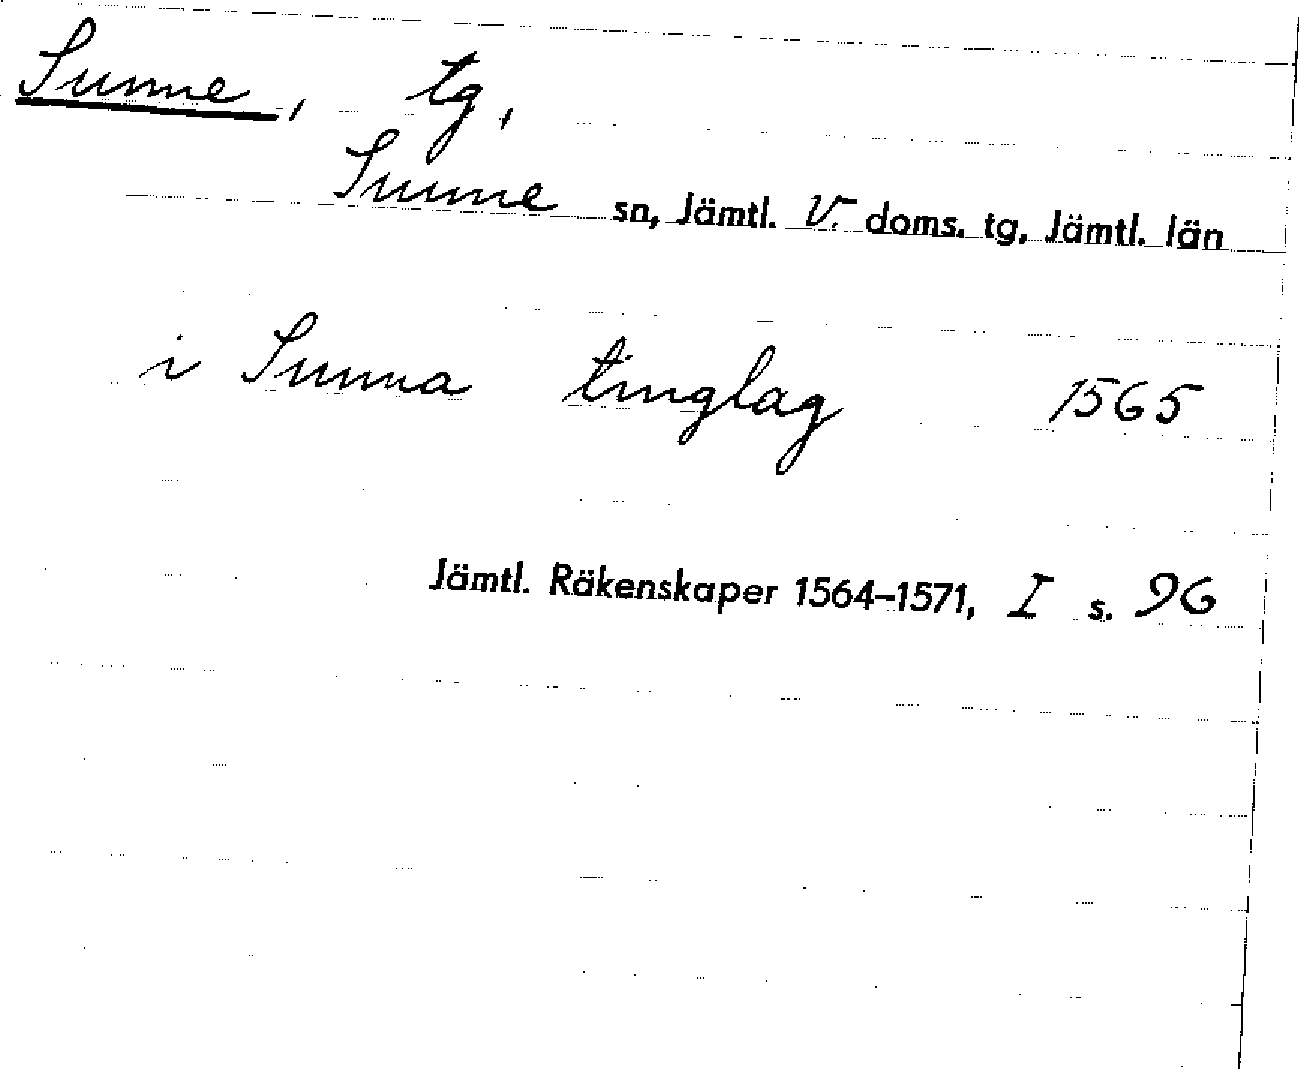 Sunne, tg,
Sunne sn, Jämtl. V. doms. tg, Jämtl. län
i Sunna tinglag 1565
Jämtl. Räkenskaper 1564–1571, I s. 96